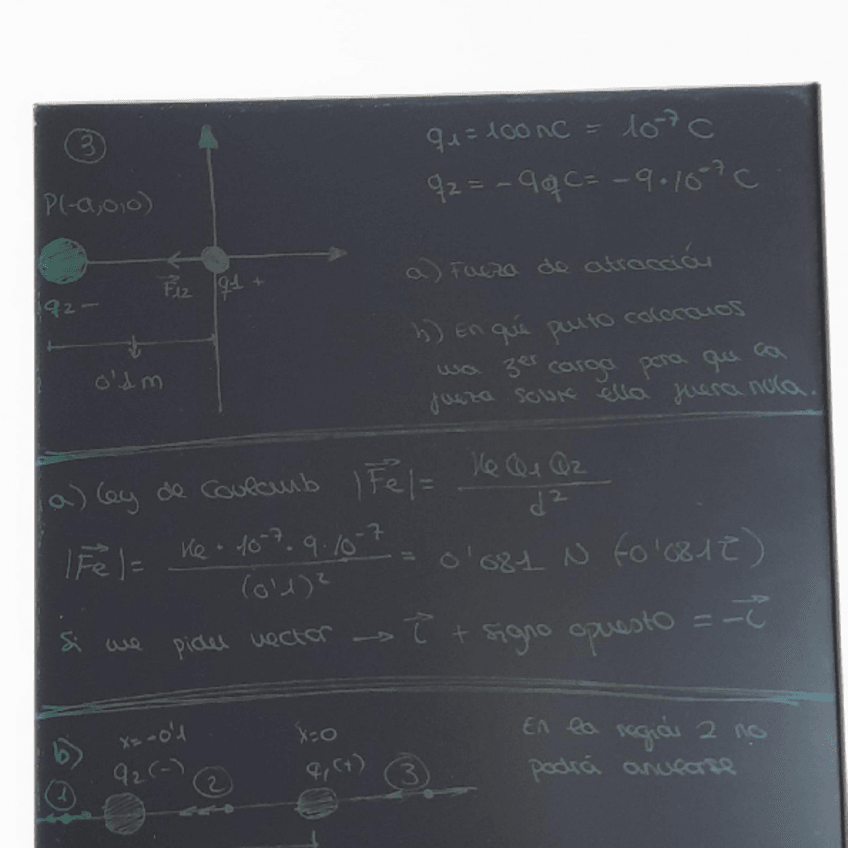 3
q1 = 100 nC = 10⁻⁷ C
q2 = - C = -9·10⁻⁷ C
P(-a,0,0)
F12
q1 +
q2 -
0'1 m
a) Fuerza de atracción
b) En qué punto colocamos
una 3er carga para que la
fuerza sobre ella fuera nula.
a) Ley de Coulomb |Fe| = Ke Q1 Q2 / d²
|Fe| = Ke · 10⁻⁷ · 9 · 10⁻⁷ / (0'1)² = 0'081 N (-0'081 i)
Si me piden vector → i + signo opuesto = -i
b)
x = -0'1
x=0
q2 (-)
q1 (+)
1
2
3
En la región 2 no
podrá anularse